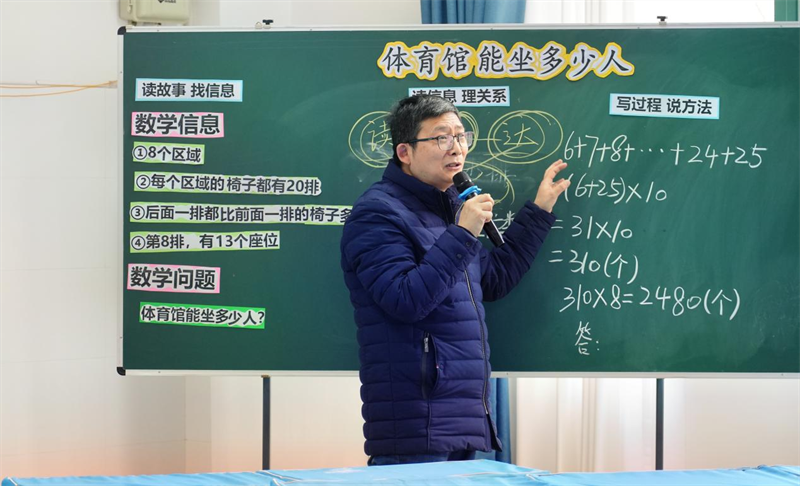 体育馆能坐多少人
读故事 找信息
数学信息
①8个区域
②每个区域的椅子都有20排
③后面一排都比前面一排的椅子多
④第8排，有13个座位
数学问题
体育馆能坐多少人?
读信息 理关系
读
达
写过程 说方法
6+7+8+…+24+25
(6+25)×10
=31×10
=310(个)
310×8=2480(个)
答: